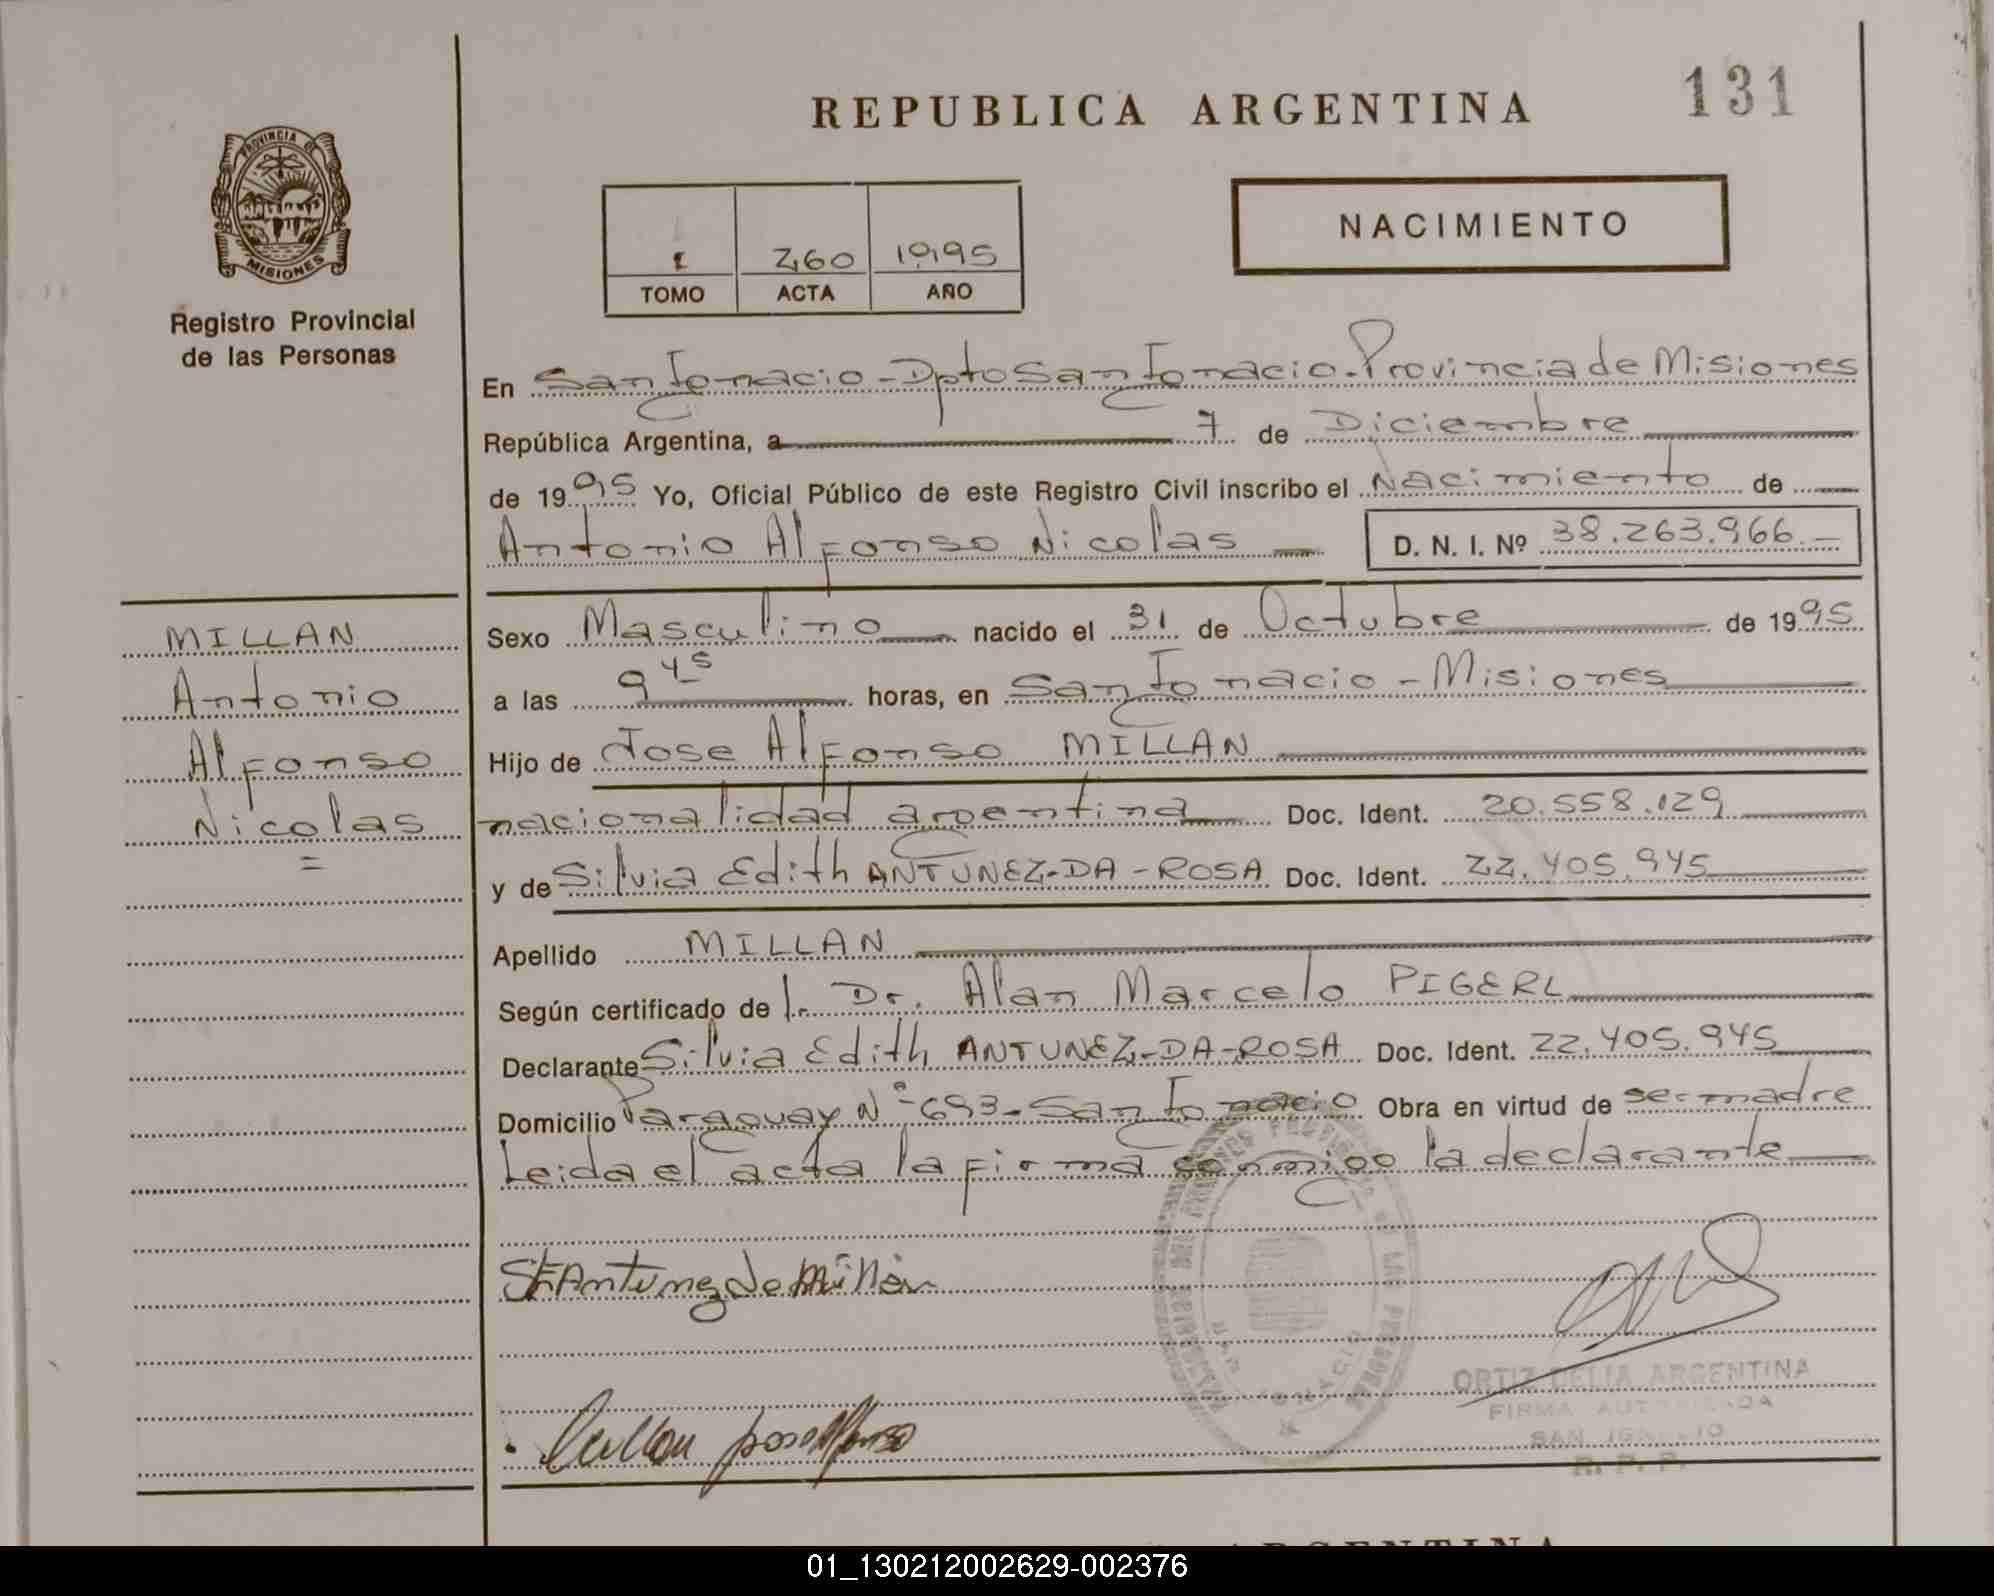 REPUBLICA ARGENTINA
131
PROVINCIA DE
MISIONES
Registro Provincial
de las Personas
260 1995
TOMO ACTA AÑO
NACIMIENTO
En San Ignacio - Dpto San Ignacio. Provincia de Misiones
República Argentina, a 7 de Diciembre
de 1995 Yo, Oficial Público de este Registro Civil inscribo el Nacimiento de
Antonio Alfonso Nicolas D. N. I. Nº 38.263.966.-
MILLAN
Antonio
Alfonso
Nicolas
=
Sexo Masculino nacido el 31 de Octubre de 1995
a las 9 45 horas, en San Ignacio - Misiones
Hijo de Jose Alfonso MILLAN
nacionalidad argentina Doc. Ident. 20.558.129
y de Silvia Edith ANTUNEZ-DA-ROSA Doc. Ident. 22.405.945
Apellido MILLAN
Según certificado de l. Dr. Alan Marcelo PIGERL
Declarante Silvia Edith ANTUNEZ-DA-ROSA Doc. Ident. 22.405.945
Domicilio Paraguay Nº 693- San Ignacio Obra en virtud de ser madre
Leida el acta la firma conmigo la declarante
SEAntunez de Millán
ORTIZ DELIA ARGENTINA
FIRMA AUTORIZADA
SAN IGNACIO
R. P. P.
Millan Jose Alfonso
ARGENTINA
01_130212002629-002376